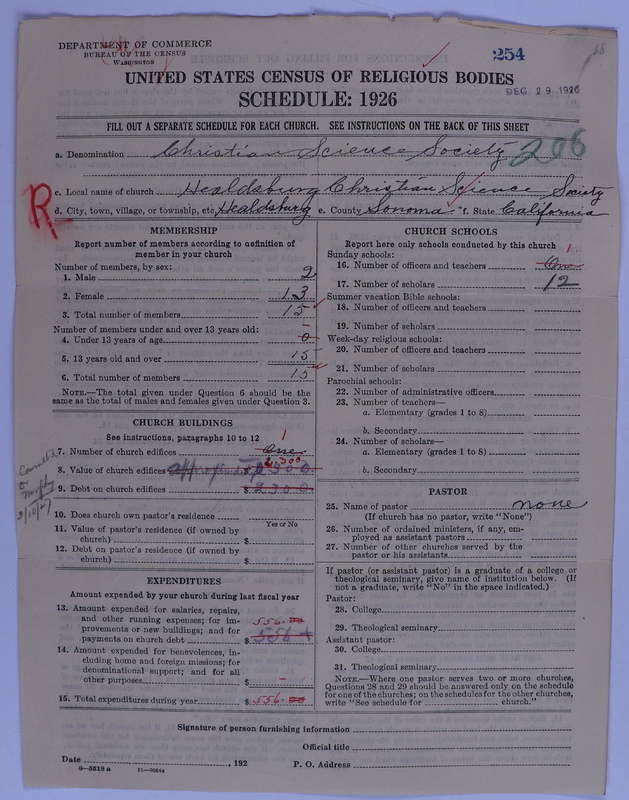 DEPARTMENT OF COMMERCE
BUREAU OF THE CENSUS
WASHINGTON
254
DEC 29 1926
UNITED STATES CENSUS OF RELIGIOUS BODIES
SCHEDULE: 1926
FILL OUT A SEPARATE SCHEDULE FOR EACH CHURCH. SEE INSTRUCTIONS ON THE BACK OF THIS SHEET
a. Denomination Christian Science Society 206
c. Local name of church Healdsburg Christian Science Society
R
d. City, town, village, or township, etc. Healdsburg e. County Sonoma f. State California
MEMBERSHIP
Report number of members according to definition of
member in your church
Number of members, by sex:
1. Male 2
2. Female 13
3. Total number of members 15
Number of members under and over 13 years old:
4. Under 13 years of age 0
5. 13 years old and over 15
6. Total number of members 15
NOTE.—The total given under Question 6 should be
same as the total of males and females given under Question 3.
CHURCH BUILDINGS
See instructions, paragraphs 10 to 12 1
7. Number of church edifices One
2,300
8. Value of church edifices $ 2300.
9. Debt on church edifices $ 2300.
3/10/27
10. Does church own pastor's residence
Yes or No
11. Value of pastor's residence (if owned by
church) $
12. Debt on pastor's residence (if owned by
church) $
EXPENDITURES
Amount expended by your church during last fiscal year
13. Amount expended for salaries, repairs,
and other running expenses; for im-
provements or new buildings; and for
payments on church debt $ 556.
556
14. Amount expended for benevolences, in-
cluding home and foreign missions; for
denominational support; and for all
other purposes $ –
15. Total expenditures during year $ 556.
CHURCH SCHOOLS
Report here only schools conducted by this church
Sunday schools: 1
16. Number of officers and teachers One
17. Number of scholars 12
Summer vacation Bible schools:
18. Number of officers and teachers
19. Number of scholars
Week-day religious schools:
20. Number of officers and teachers
21. Number of scholars
Parochial schools:
22. Number of administrative officers
23. Number of teachers—
a. Elementary (grades 1 to 8)
b. Secondary
24. Number of scholars—
a. Elementary (grades 1 to 8)
b. Secondary
PASTOR
25. Name of pastor none
(If church has no pastor, write "None")
26. Number of ordained ministers, if any, em-
ployed as assistant pastors
27. Number of other churches served by the
pastor or his assistants
If pastor (or assistant pastor) is a graduate of a college or
theological seminary, give name of institution below. (If
not a graduate, write "No" in the space indicated.)
Pastor:
28. College
29. Theological seminary
Assistant pastor:
30. College
31. Theological seminary
NOTE.—Where one pastor serves two or more churches,
Questions 28 and 29 should be answered only on the schedule
for one of the churches; on the schedules for the other churches,
write "See schedule for church."
Signature of person furnishing information
Official title
Date , 192 P. O. Address
8—5518a 11—9064a